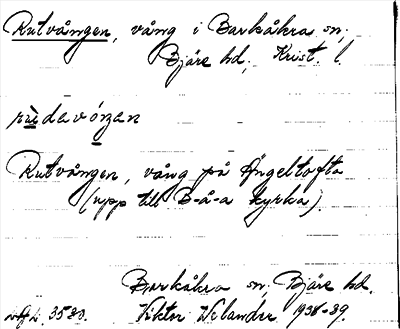 Rutvången, vång i Barkåkra sn,
Bjäre hd, Krist. l.
Rutvången, vång på Ängeltofta
(upp till B-å-a kyrka).
Barkåkra sn, Bjäre hd.
3580. Viktor Welander 1938-39.